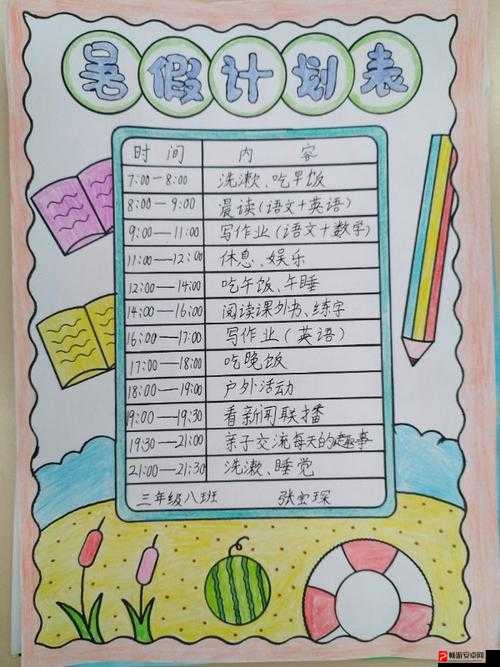 暑假计划表
时 间 内 容
7:00—8:00 洗漱、吃早饭
8:00—9:00 晨读(语文+英语)
9:00—11:00 写作业(语文+数学)
11:00—12:00 休息、娱乐
12:00—14:00 吃午饭、午睡
14:00—16:00 阅读课外书、练字
16:00—17:00 写作业(英语)
17:00—18:00 吃晚饭
18:00—19:00 户外活动
19:00—19:30 看新闻联播
19:30—21:00 亲子交流每天的趣事
21:00—21:30 洗漱、睡觉
三年级八班 张 琛
畅游安卓网